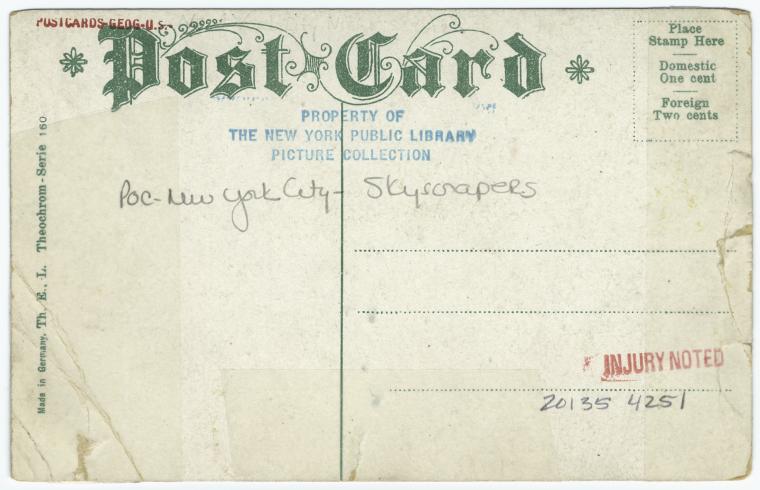 POSTCARDS-GEOG-U.S.
Post Card
Place
Stamp Here
Domestic
One cent
Foreign
Two cents
PROPERTY OF
THE NEW YORK PUBLIC LIBRARY
PICTURE COLLECTION
Poc-New York City- Skyscrapers
Made in Germany. Th. E. L. Theochrom-Serie 160
INJURY NOTED
20135 4251